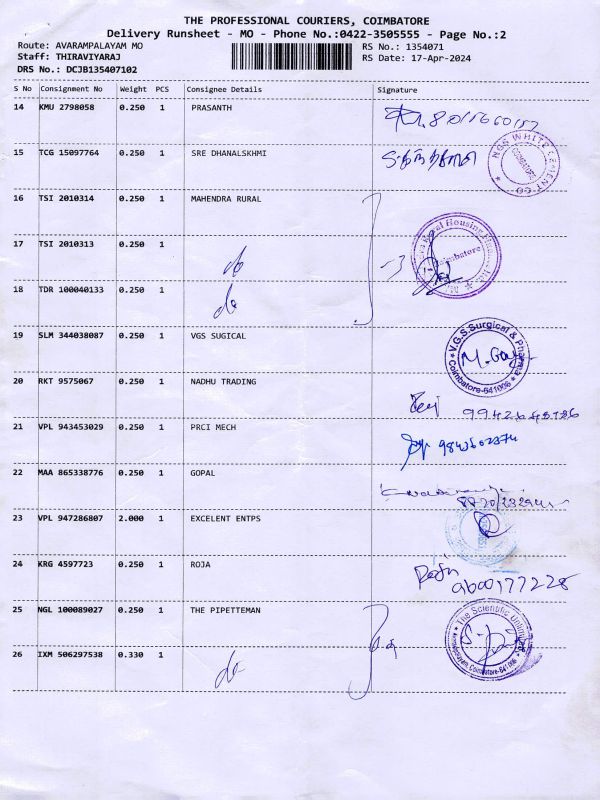 THE PROFESSIONAL COURIERS, COIMBATORE
Delivery Runsheet - MO - Phone No.:0422-3505555 - Page No.:2
Route: AVARAMPALAYAM MO
RS No.: 1354071
Staff: THIRAVIYARAJ
RS Date: 17-Apr-2024
DRS No.: DCJB135407102
S No Consignment No Weight PCS Consignee Details Signature
14 KMU 2798058 0.250 1 PRASANTH
15 TCG 15097764 0.250 1 SRE DHANALSKHMI
NGS WHITE CEMENT CO
16 TSI 2010314 0.250 1 MAHENDRA RURAL
17 TSI 2010313 0.250 1 do
Rural Housing
Coimbatore
18 TDR 100040133 0.250 1 do
19 SLM 344038087 0.250 1 VGS SUGICAL
V.G.S.Surgical & Pharma
Coimbatore-641006
20 RKT 9575067 0.250 1 NADHU TRADING
21 VPL 943453029 0.250 1 PRCI MECH
22 MAA 865338776 0.250 1 GOPAL
23 VPL 947286807 2.000 1 EXCELENT ENTPS
24 KRG 4597723 0.250 1 ROJA
9600177228
25 NGL 100089027 0.250 1 THE PIPETTEMAN
The Scientific
Coimbatore-641006
26 IXM 506297538 0.330 1 do